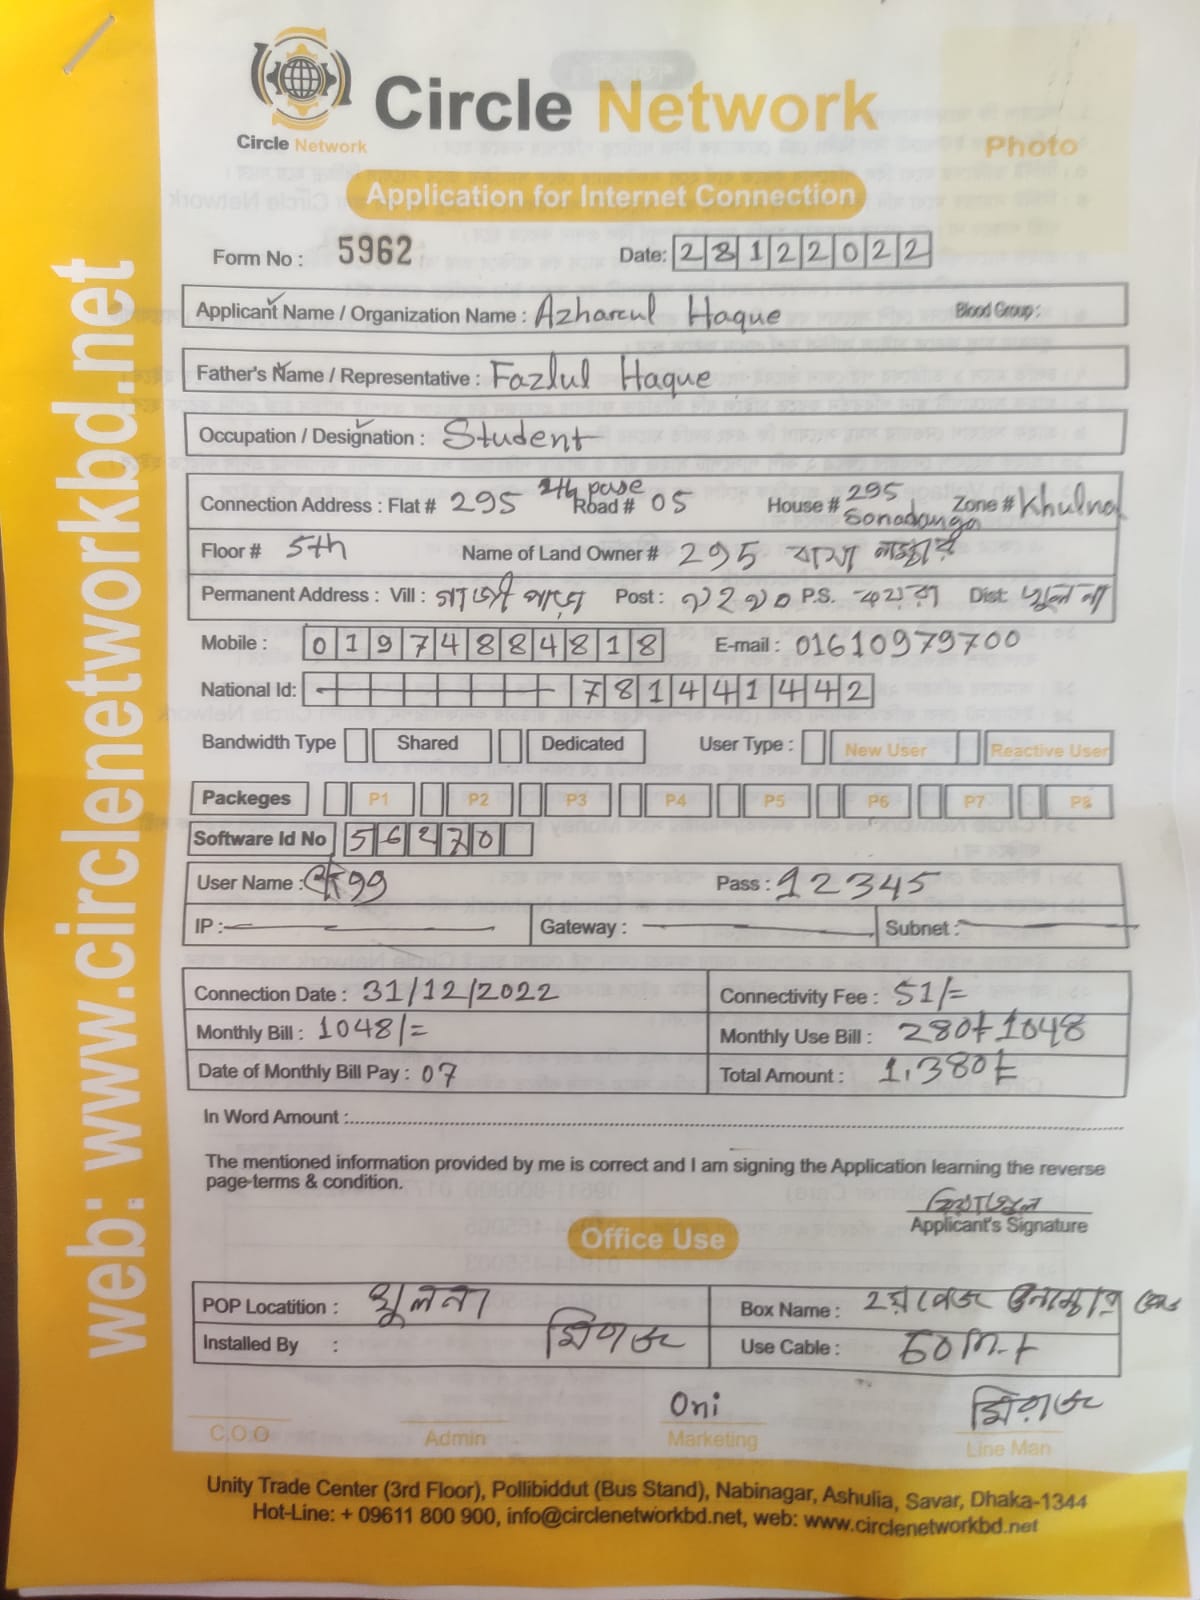 web: www.circlenetworkbd.net
Circle Network
Circle Network
Photo
Application for Internet Connection
Form No : 5962 Date: 28122022
Applicant Name / Organization Name : Azharul Haque Blood Group :
Father's Name / Representative : Fazlul Haque
Occupation / Designation : Student
Connection Address : Flat # 295 Road # 05 House # 295 Sonadanga Zone # Khulna
Floor # 5th Name of Land Owner # 295
Permanent Address : Vill : Post : P.S. কয়রা Dist: খুলনা
Mobile : 01974884818 E-mail : 01610979700
National Id: 7814441442
Bandwidth Type Shared Dedicated User Type : New User Reactive User
Packeges P1 P2 P3 P4 P5 P6 P7 P8
Software Id No 56270
User Name : Pass : 12345
IP : Gateway : Subnet :
Connection Date : 31/12/2022 Connectivity Fee : 51/=
Monthly Bill : 1048/= Monthly Use Bill : 280+1048
Date of Monthly Bill Pay : 07 Total Amount : 1,380
In Word Amount :
The mentioned information provided by me is correct and I am signing the Application learning the reverse
page-terms & condition.
Applicant's Signature
Office Use
POP Locatition : খুলনা Box Name : ২য়
Installed By : মিরাজ Use Cable :
Oni মিরাজ
C.O.O Admin Marketing Line Man
Unity Trade Center (3rd Floor), Pollibiddut (Bus Stand), Nabinagar, Ashulia, Savar, Dhaka-1344
Hot-Line: + 09611 800 900, info@circlenetworkbd.net, web: www.circlenetworkbd.net